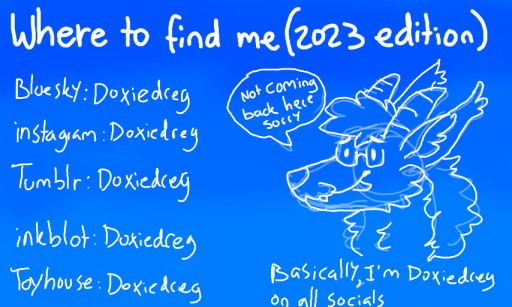 Where to find me (2023 edition)
Bluesky: Doxiedreg
instagram: Doxiedreg
Tumblr: Doxiedreg
inkblot: Doxiedreg
Toyhouse: Doxiedreg
Not coming
back here
sorry
Basically, I'm Doxiedreg
on all socials